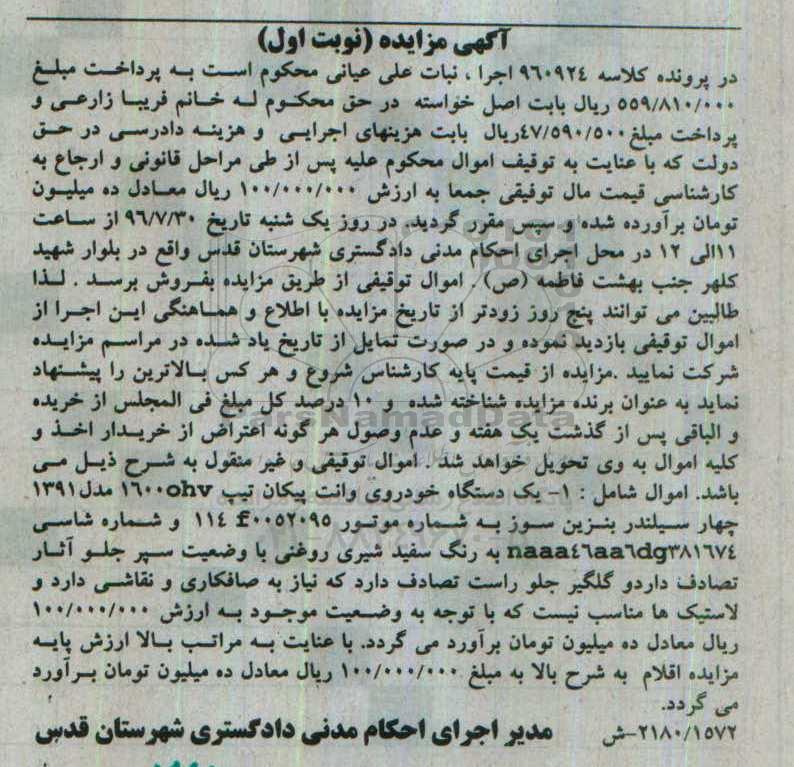 آگهی مزایده (نوبت اول)
در پرونده کلاسه ۹۶۰۹۲۴ اجرا ، نبات علی عیانی محکوم است به پرداخت مبلغ
۵۵۹/۸۱۰/۰۰۰ ریال بابت اصل خواسته در حق محکوم له خانم فریبا زارعی و
پرداخت مبلغ ۴۷/۵۹۰/۵۰۰ریال بابت هزینهای اجرایی و هزینه دادرسی در حق
دولت که با عنایت به توقیف اموال محکوم علیه پس از طی مراحل قانونی و ارجاع به
کارشناسی قیمت مال توقیفی جمعا به ارزش ۱۰۰/۰۰۰/۰۰۰ ریال معادل ده میلیون
تومان برآورده شده و سپس مقرر گردید. در روز یک شنبه تاریخ ۹۶/۷/۳۰ از ساعت
۱۱الی ۱۲ در محل اجرای احکام مدنی دادگستری شهرستان قدس واقع در بلوار شهید
کلهر جنب بهشت فاطمه (ص) . اموال توقیفی از طریق مزایده بفروش برسد . لذا
طالبین می توانند پنج روز زودتر از تاریخ مزایده با اطلاع و هماهنگی این اجرا از
اموال توقیفی بازدید نموده و در صورت تمایل از تاریخ یاد شده در مراسم مزایده
شرکت نمایید .مزایده از قیمت پایه کارشناس شروع و هر کس بالاترین را پیشنهاد
نماید به عنوان برنده مزایده شناخته شده و ۱۰ درصد کل مبلغ فی المجلس از خریده
و الباقی پس از گذشت یک هفته و عدم وصول هر گونه اعتراض از خریدار اخذ و
کلیه اموال به وی تحویل خواهد شد . اموال توقیفی و غیر منقول به شرح ذیل می
باشد. اموال شامل : ۱- یک دستگاه خودروی وانت پیکان تیپ ۱۶۰۰ohv مدل ۱۳۹۱
چهار سیلندر بنزین سوز به شماره موتور ۱۱۴ f۰۰۵۲۰۹۵ و شماره شاسی
naaa۴۶aa۶dg۳۸۱۶۷۴ به رنگ سفید شیری روغنی با وضعیت سپر جلو آثار
تصادف داردو گلگیر جلو راست تصادف دارد که نیاز به صافکاری و نقاشی دارد و
لاستیک ها مناسب نیست که با توجه به وضعیت موجود به ارزش ۱۰۰/۰۰۰/۰۰۰
ریال معادل ده میلیون تومان برآورد می گردد. با عنایت به مراتب بالا ارزش پایه
مزایده اقلام به شرح بالا به مبلغ ۱۰۰/۰۰۰/۰۰۰ ریال معادل ده میلیون تومان برآورد
می گردد.
۲۱۸۰/۱۵۷۲-ش مدیر اجرای احکام مدنی دادگستری شهرستان قدس
ParsNamadData